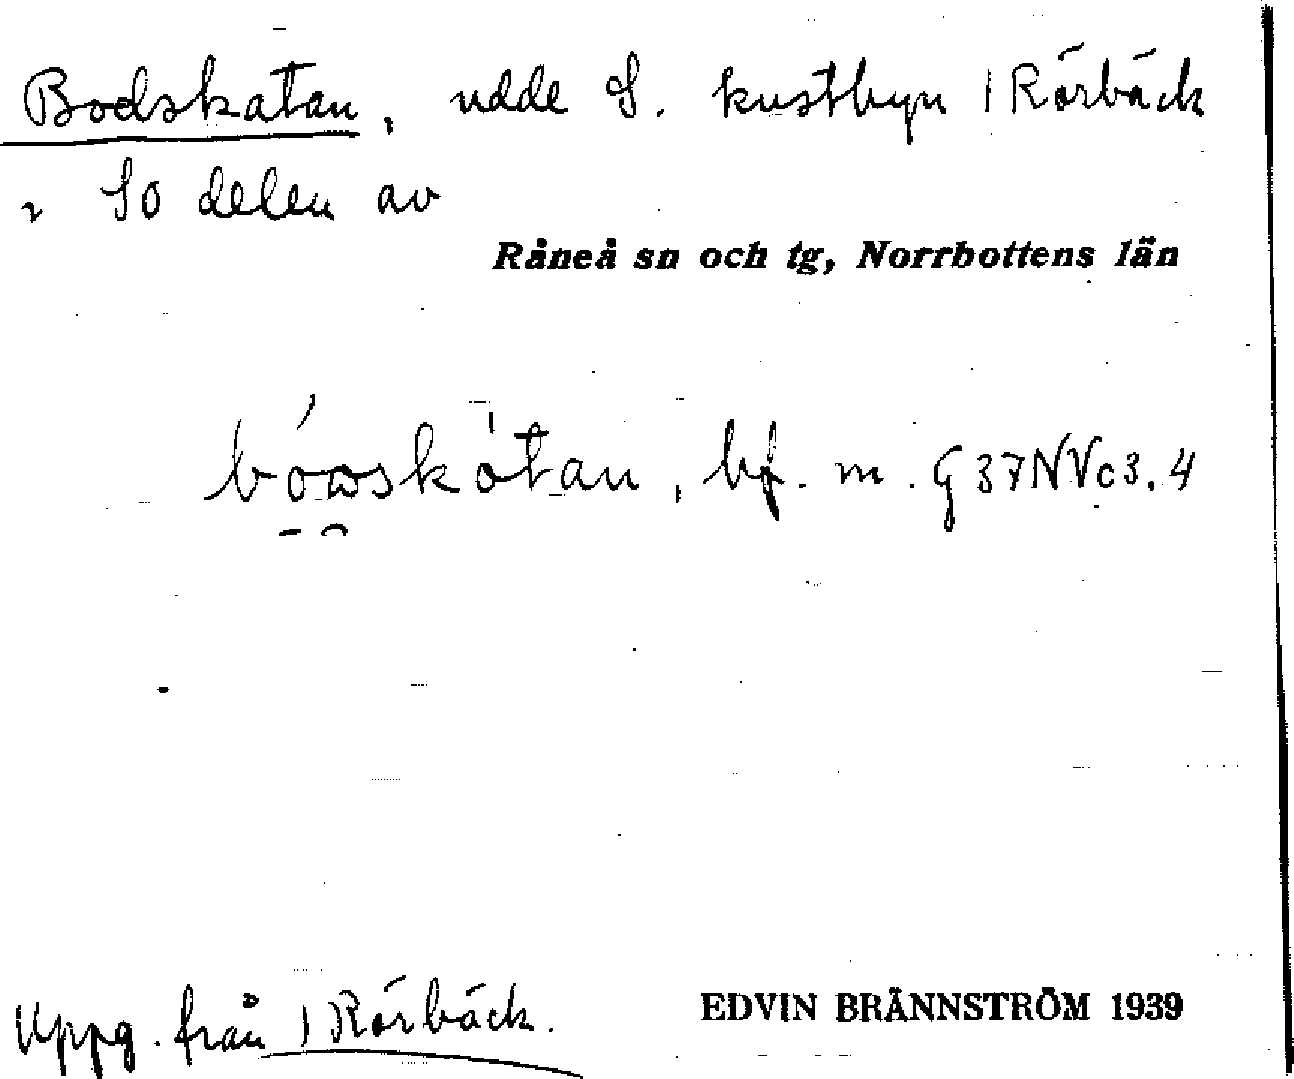 Bodskatan, udde S. kustbyn 1 Rörbäck
i SO delen av
Råneå sn och tg, Norrbottens län
bf. m. G37NVc3.4
Uppg. från 1 Rörbäck.
EDVIN BRÄNNSTRÖM 1939